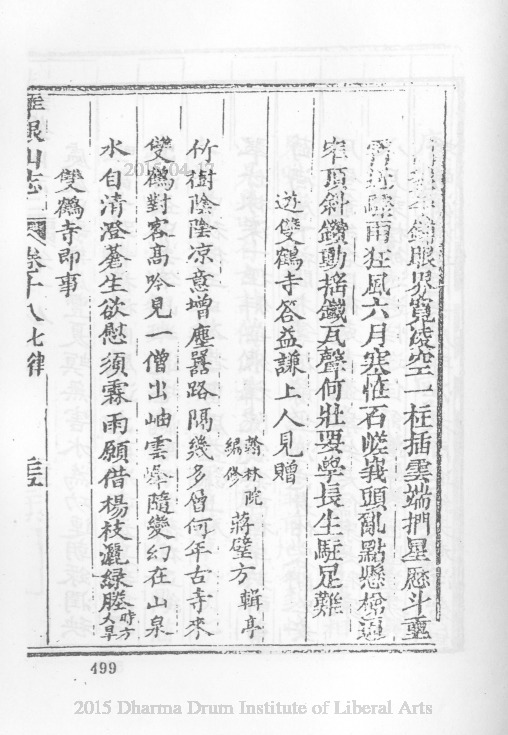 眼界寬凌空一柱插雲端捫星歷斗重
驟雨狂風六月寒怪石嵯峩頭亂點懸梯逼
窄頂斜鑽動搖鐵瓦聲何壯要學長生駐足難
遊雙鶴寺答益謙上人見贈
翰林院編修 蔣璧方 輯亭
竹樹陰陰凉意增塵囂路隔幾多曾何年古寺來
雙鶴對客高吟見一僧出岫雲舉隨變幻在山泉
水自清澄蒼生欲慰須霖雨願借楊枝灑綠塍時方大旱
雙鶴寺即事
眉山志 卷十八七律
499
2015-04-17
2015 Dharma Drum Institute of Liberal Arts